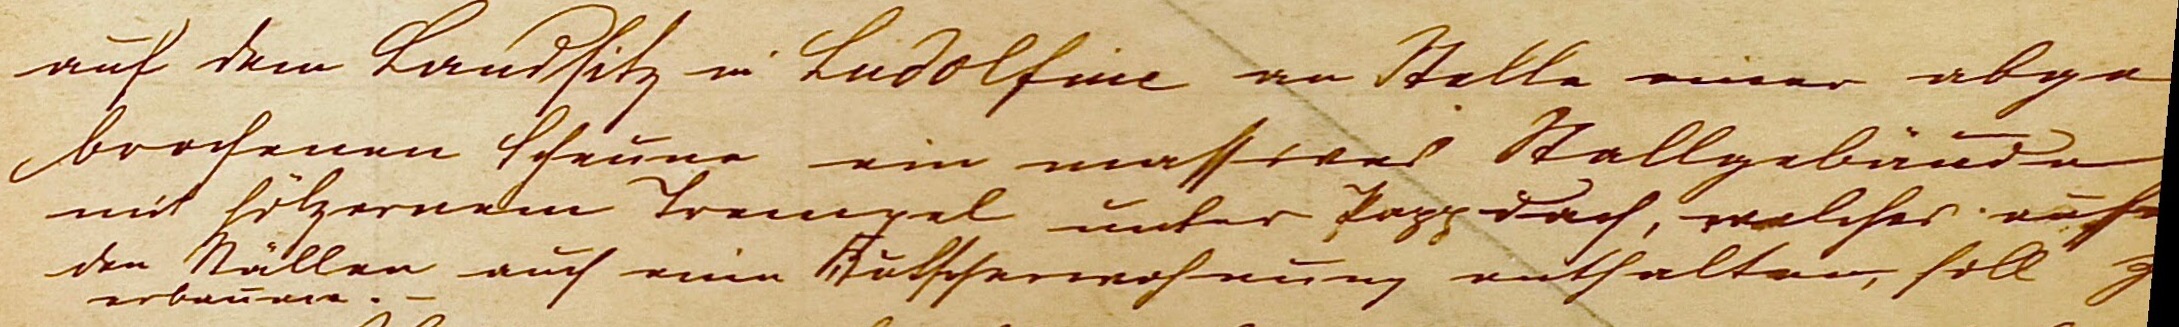 auf dem Landsitz in Ludolfine an Stelle einer abge
brochenen Scheune ein massives Stallgebäude
mit hölzernem Trempel unter Pappdach, welches außer
den Ställen auch eine Kutscherwohnung enthalten soll z
erbauen. –